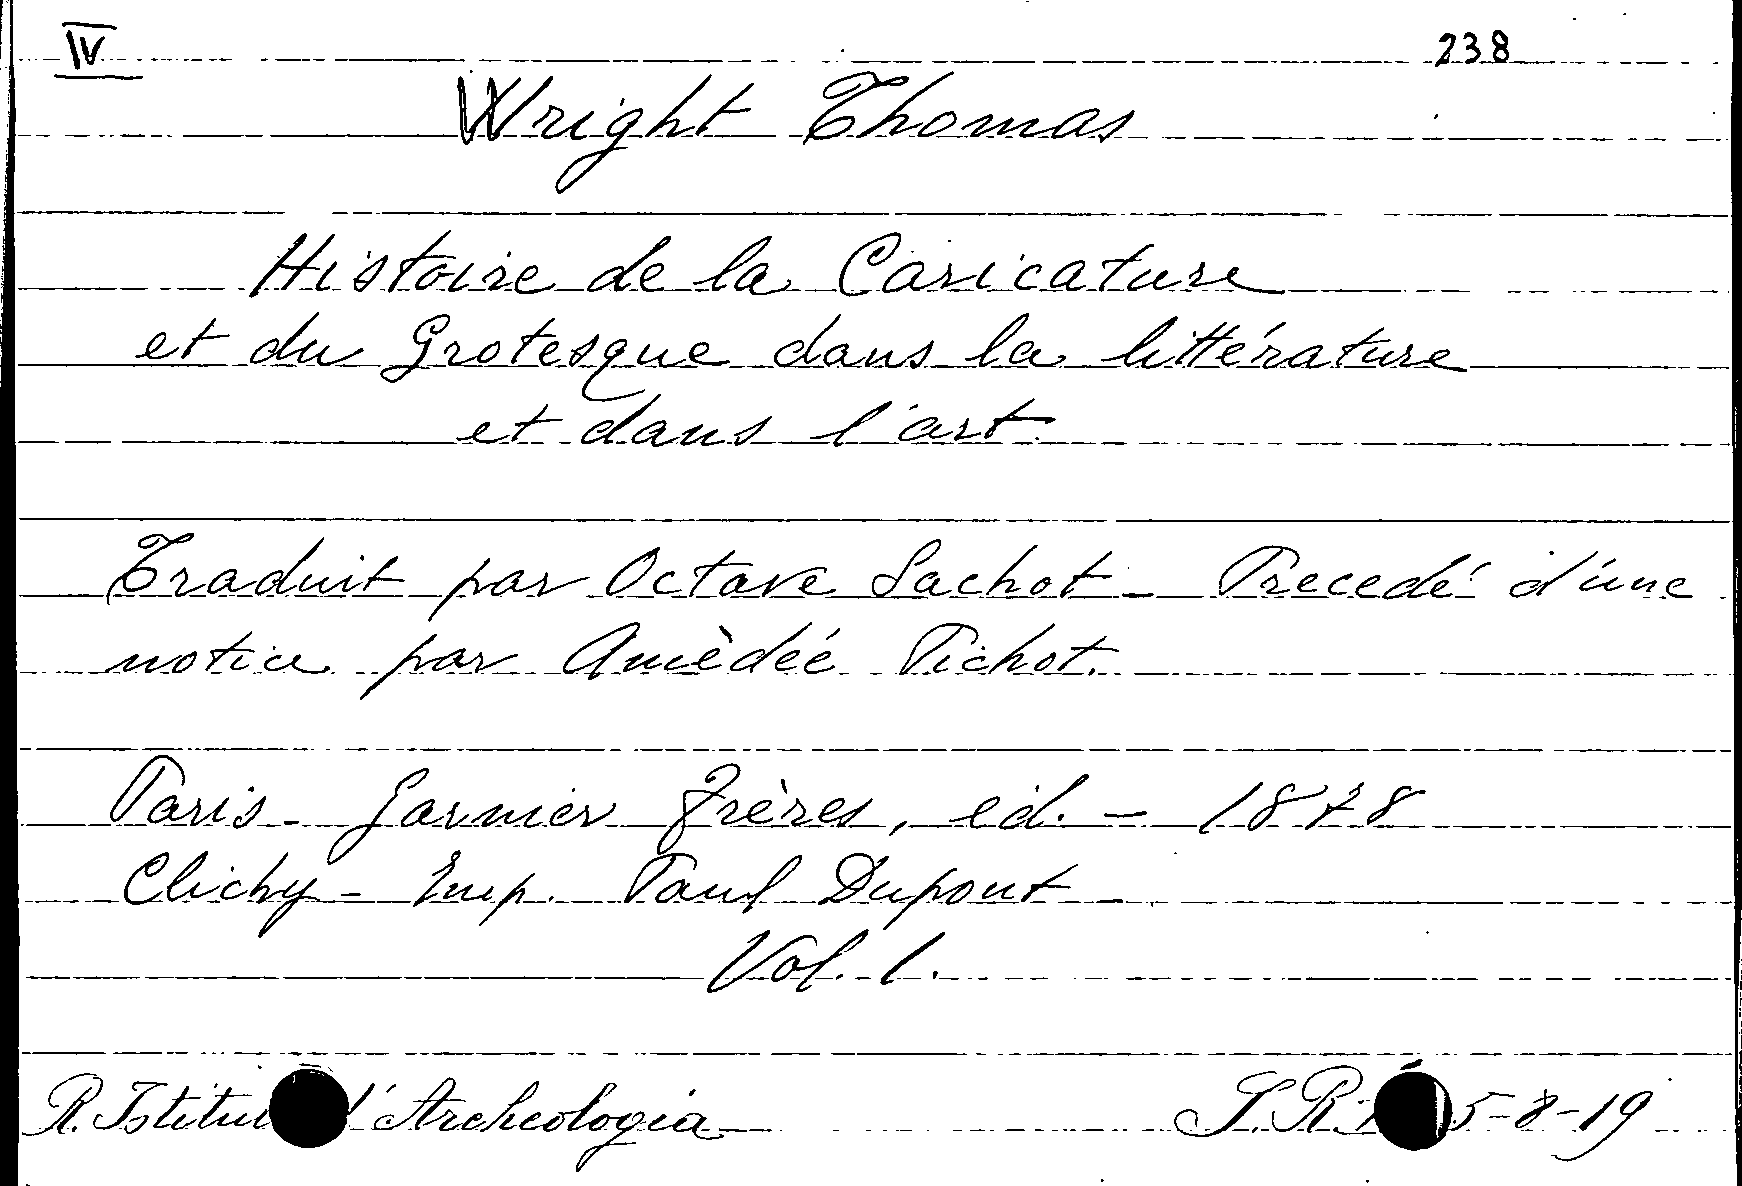 IV 238
Wright Thomas
Histoire de la Caricature
et du Grotesque dans la littérature
et dans l'art
Traduit par Octave Sachot - Precedé d'une
notice par Amèdéé Pichot.
Paris - Garnier Frères, ed. - 1878
Clichy - Imp. Paul Dupont -
Vol. 1.
R. Archeologia S. R. 5-8-19